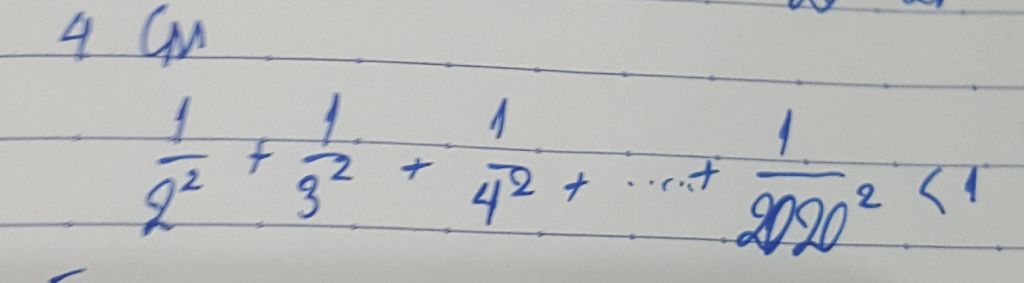 4 Cm
1/2² + 1/3² + 1/4² + ..... + 1/2020² < 1